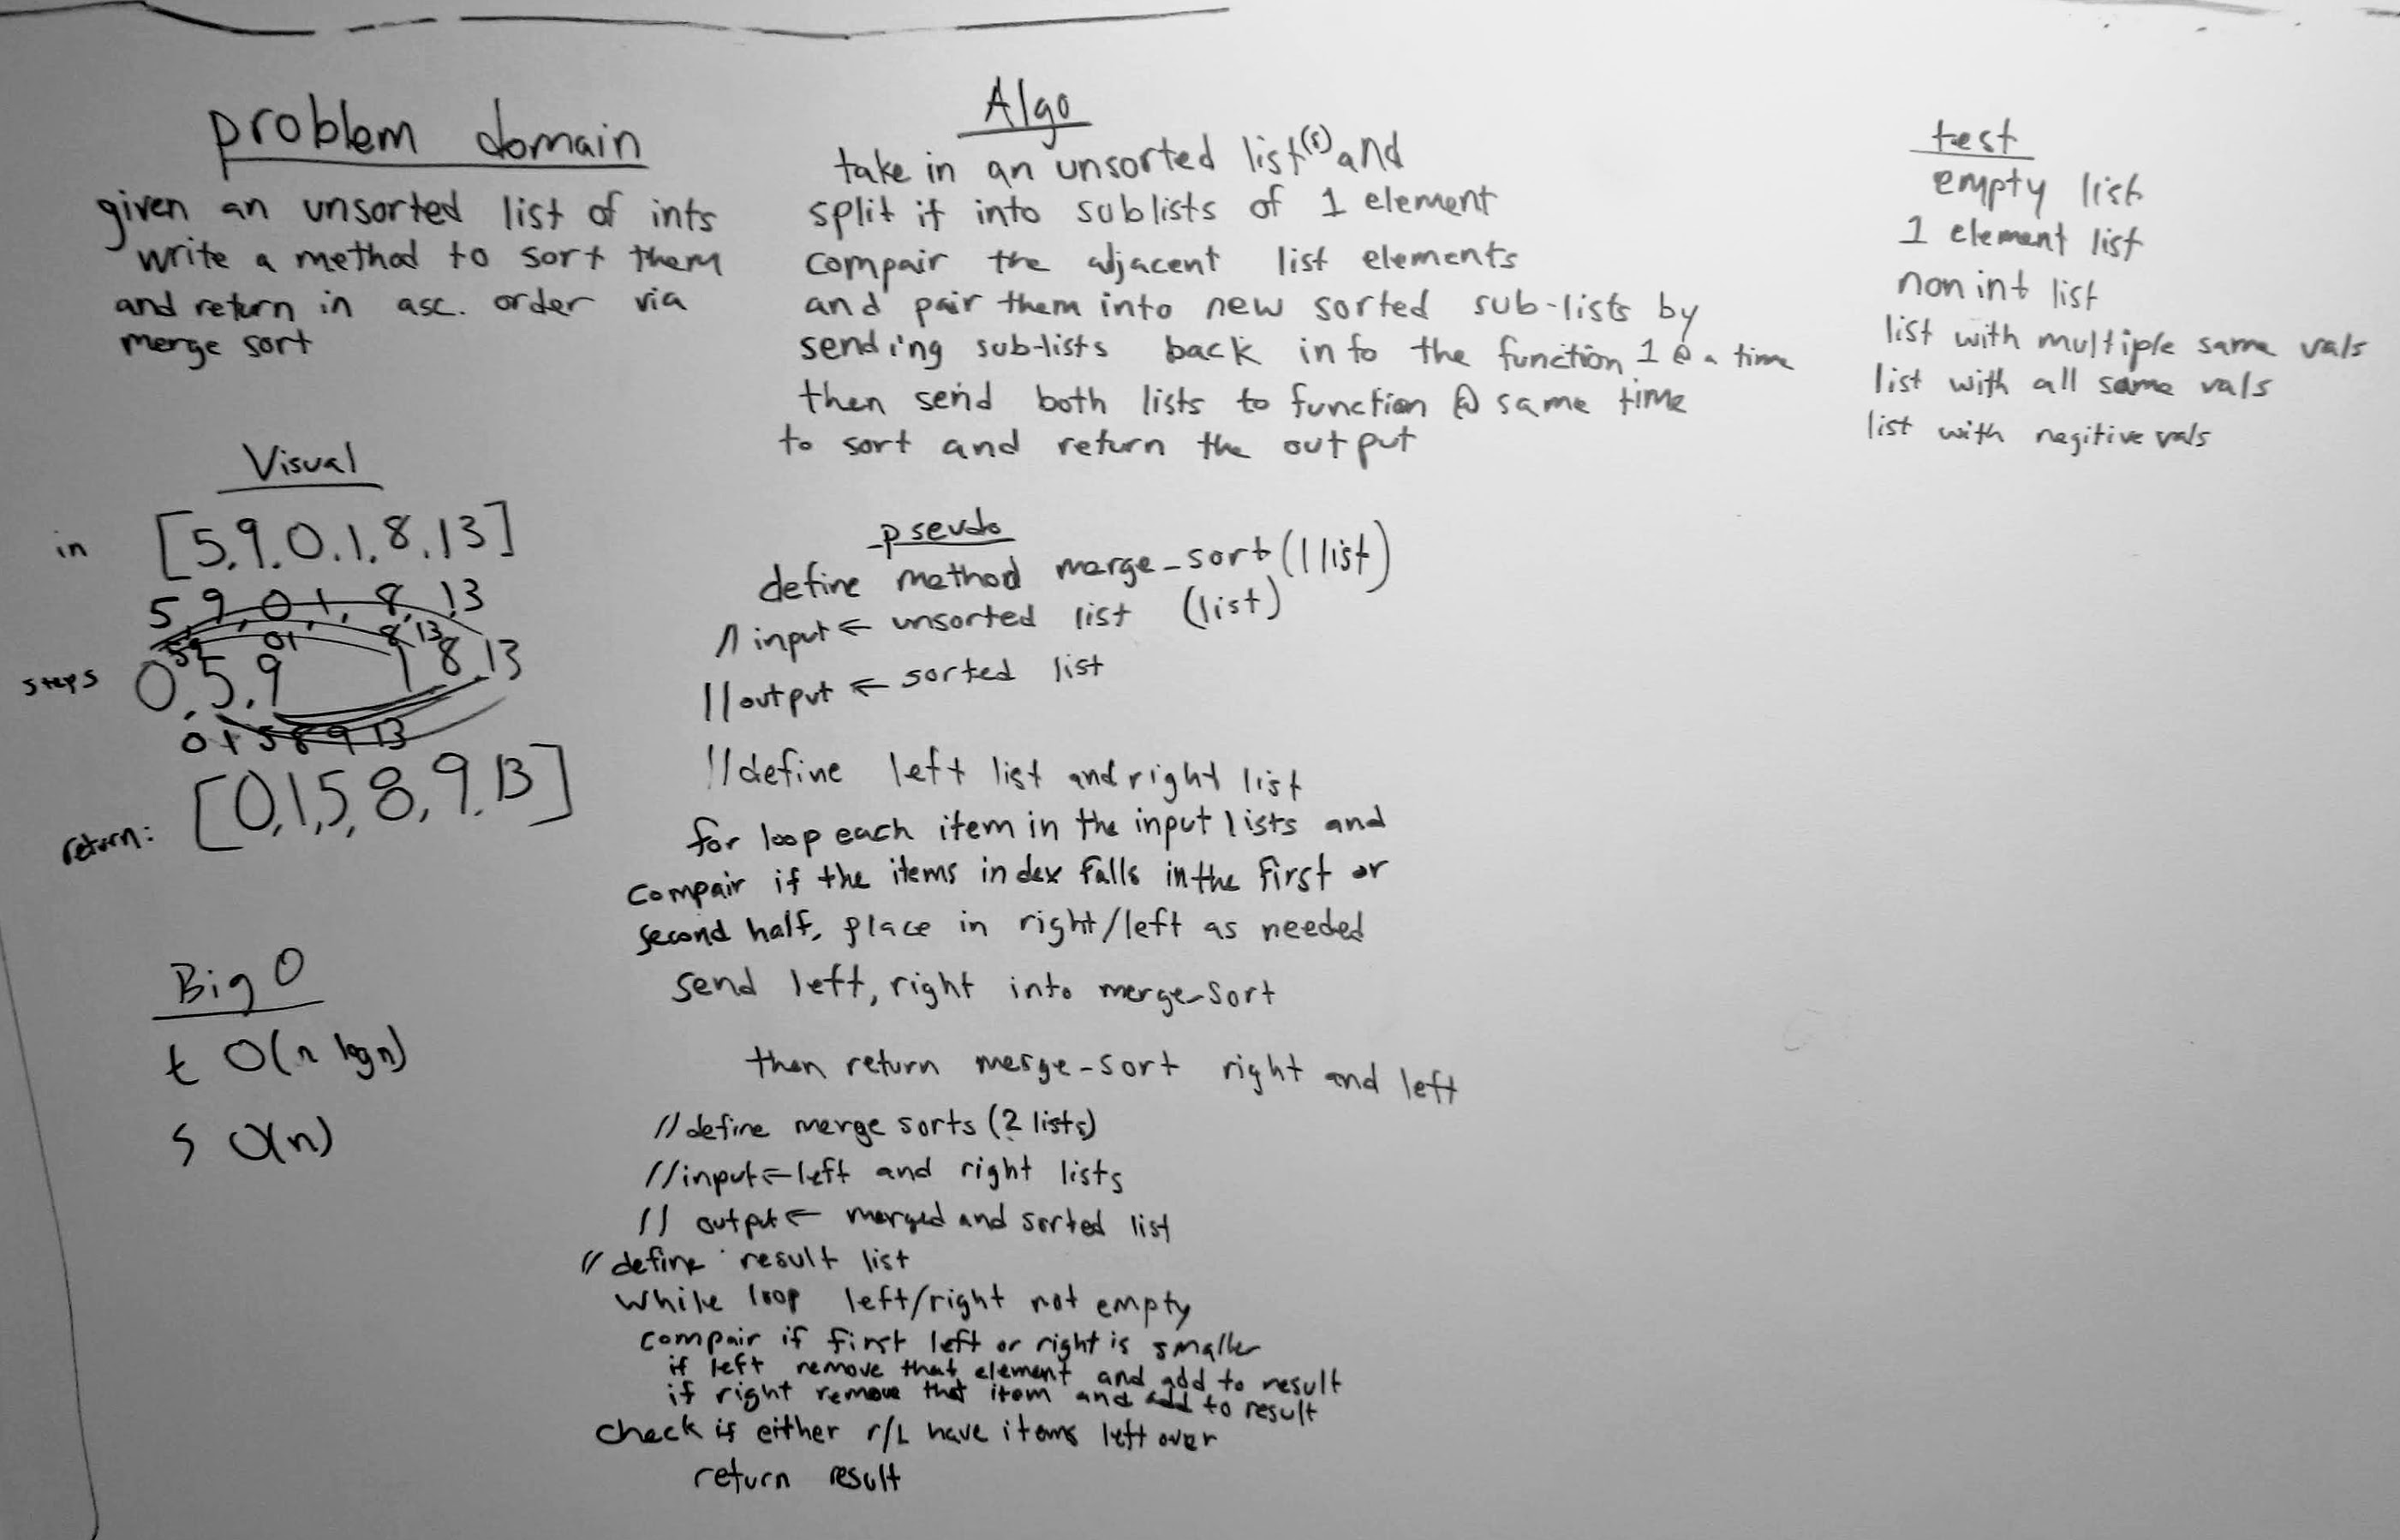 problem domain
given an unsorted list of ints
write a method to sort them
and return in asc. order via
merge sort
Visual
in [5,9,0,1,8,13]
5,9,0,1,8,13
59 01 8,13
steps 0,5,9 1 8 13
0 1 5 8 9 13
return: [0,1,5,8,9,13]
Big O
t O(n logn)
s O(n)
Algo
take in an unsorted list(s) and
split it into sublists of 1 element
compair the adjacent list elements
and pair them into new sorted sub-lists by
sending sub-lists back into the function 1 @ a time
then send both lists to function @ same time
to sort and return the output
pseudo
define method merge_sort(1 list)
// input ← unsorted list (list)
// output ← sorted list
// define left list and right list
for loop each item in the input lists and
compair if the items index falls in the first or
second half, place in right/left as needed
send left, right into merge-sort
then return merge-sort right and left
// define merge sorts (2 lists)
// input ← left and right lists
// output ← merged and sorted list
// define result list
while loop left/right not empty
compair if first left or right is smaller
if left remove that element and add to result
if right remove that item and add to result
check if either r/L have items left over
return result
test
empty list
1 element list
non int list
list with multiple same vals
list with all same vals
list with negitive vals